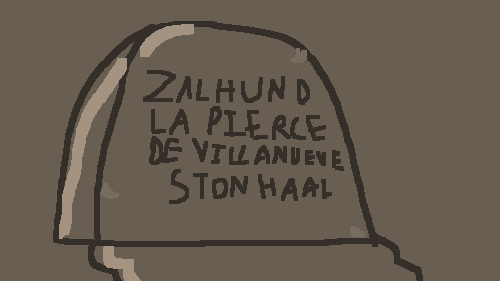 ZALHUND
LA PIERCE
DE VILLANUEVE
STONHAAL